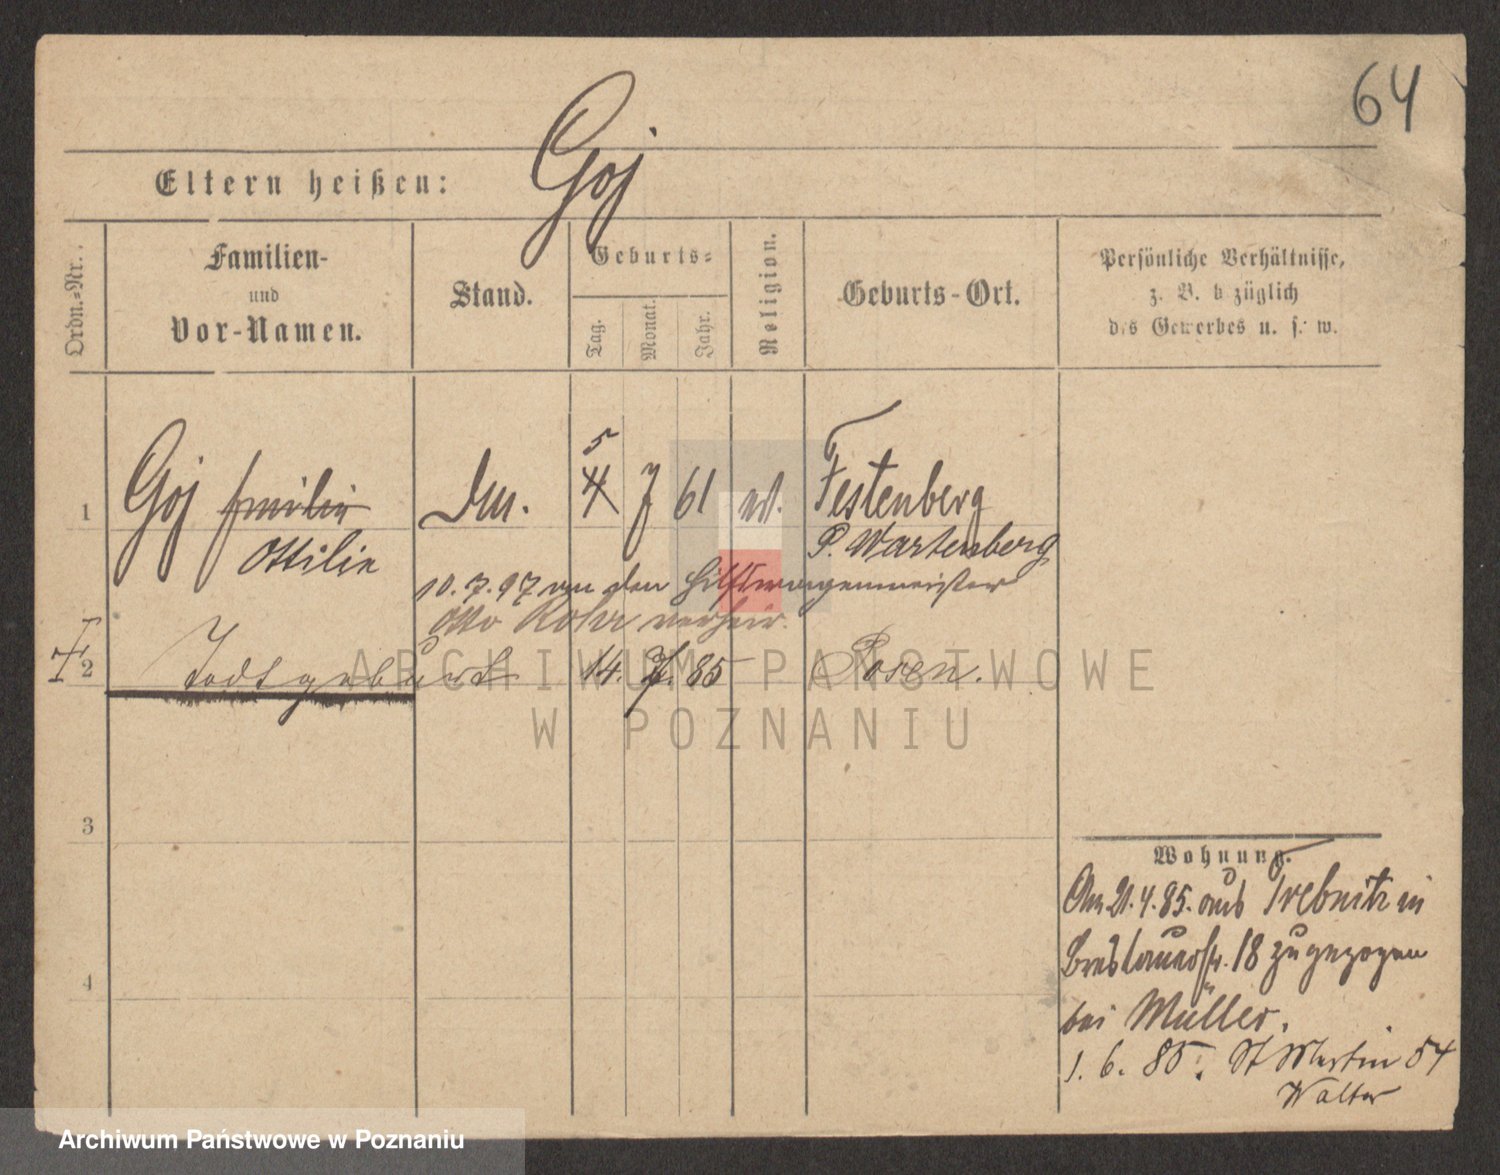 64
Goj
Eltern heißen:
Ordn.=Nr.
Familien-
und
Vor-Namen.
Stand.
Geburts=
Tag.
Monat.
Jahr.
Religion.
Geburts-Ort.
Persönliche Verhältnisse,
z. B. b züglich
des Gewerbes u. s. w.
1 Goj Emilie 5 4 7 61 Festenberg
Ottilie P. Wartenberg
10.7.97 an den Hilfswagenmeister
Otto Rohr verheir.
2 Todtgeburt 14. 7. 85 Posen.
3
4
Wohnung.
Am 21.4.85. aus Trebnitz in
Breslauerstr. 18 zugezogen
bei Müller.
1. 6. 85. St Martin 54
Walter
ARCHIWUM PAŃSTWOWE
W POZNANIU
Archiwum Państwowe w Poznaniu